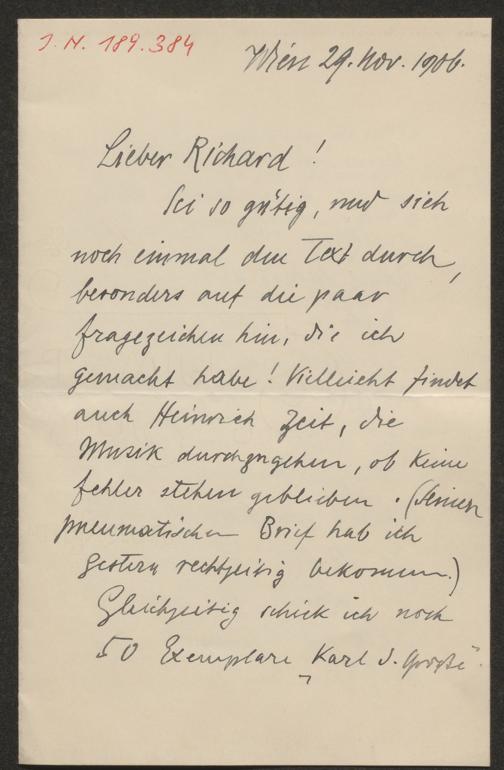 J. N. 189.384
Wien 29. Nov. 1906.
Lieber Richard!
Sei so gütig, und sieh
noch einmal den Text durch,
besonders auf die paar
Fragezeichen hin, die ich
gemacht habe! Vielleicht findet
auch Heinrich Zeit, die
Musik durchzugehen, ob keine
Fehler stehen geblieben. (Seinen
pneumatischen Brief hab ich
gestern rechtzeitig bekommen.)
Gleichzeitig schick ich noch
50 Exemplare „Karl d. Große“.